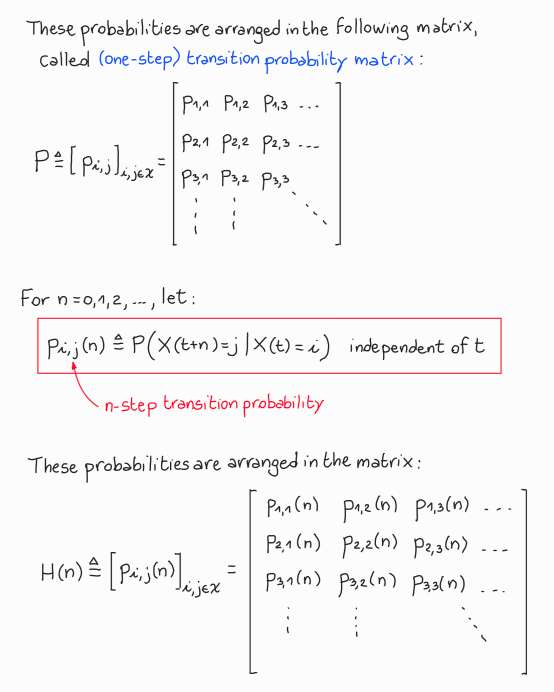 These probabilities are arranged in the following matrix,
called (one-step) transition probability matrix:
P ≜ [p_{i,j}]_{i,j∈X} =
p_{1,1} p_{1,2} p_{1,3} ...
p_{2,1} p_{2,2} p_{2,3} ...
p_{3,1} p_{3,2} p_{3,3}
For n=0,1,2,..., let:
p_{i,j}(n) ≜ P(X(t+n)=j | X(t)=i) independent of t
n-step transition probability
These probabilities are arranged in the matrix:
H(n) ≜ [p_{i,j}(n)]_{i,j∈X} =
p_{1,1}(n) p_{1,2}(n) p_{1,3}(n) ...
p_{2,1}(n) p_{2,2}(n) p_{2,3}(n) ...
p_{3,1}(n) p_{3,2}(n) p_{3,3}(n) ...